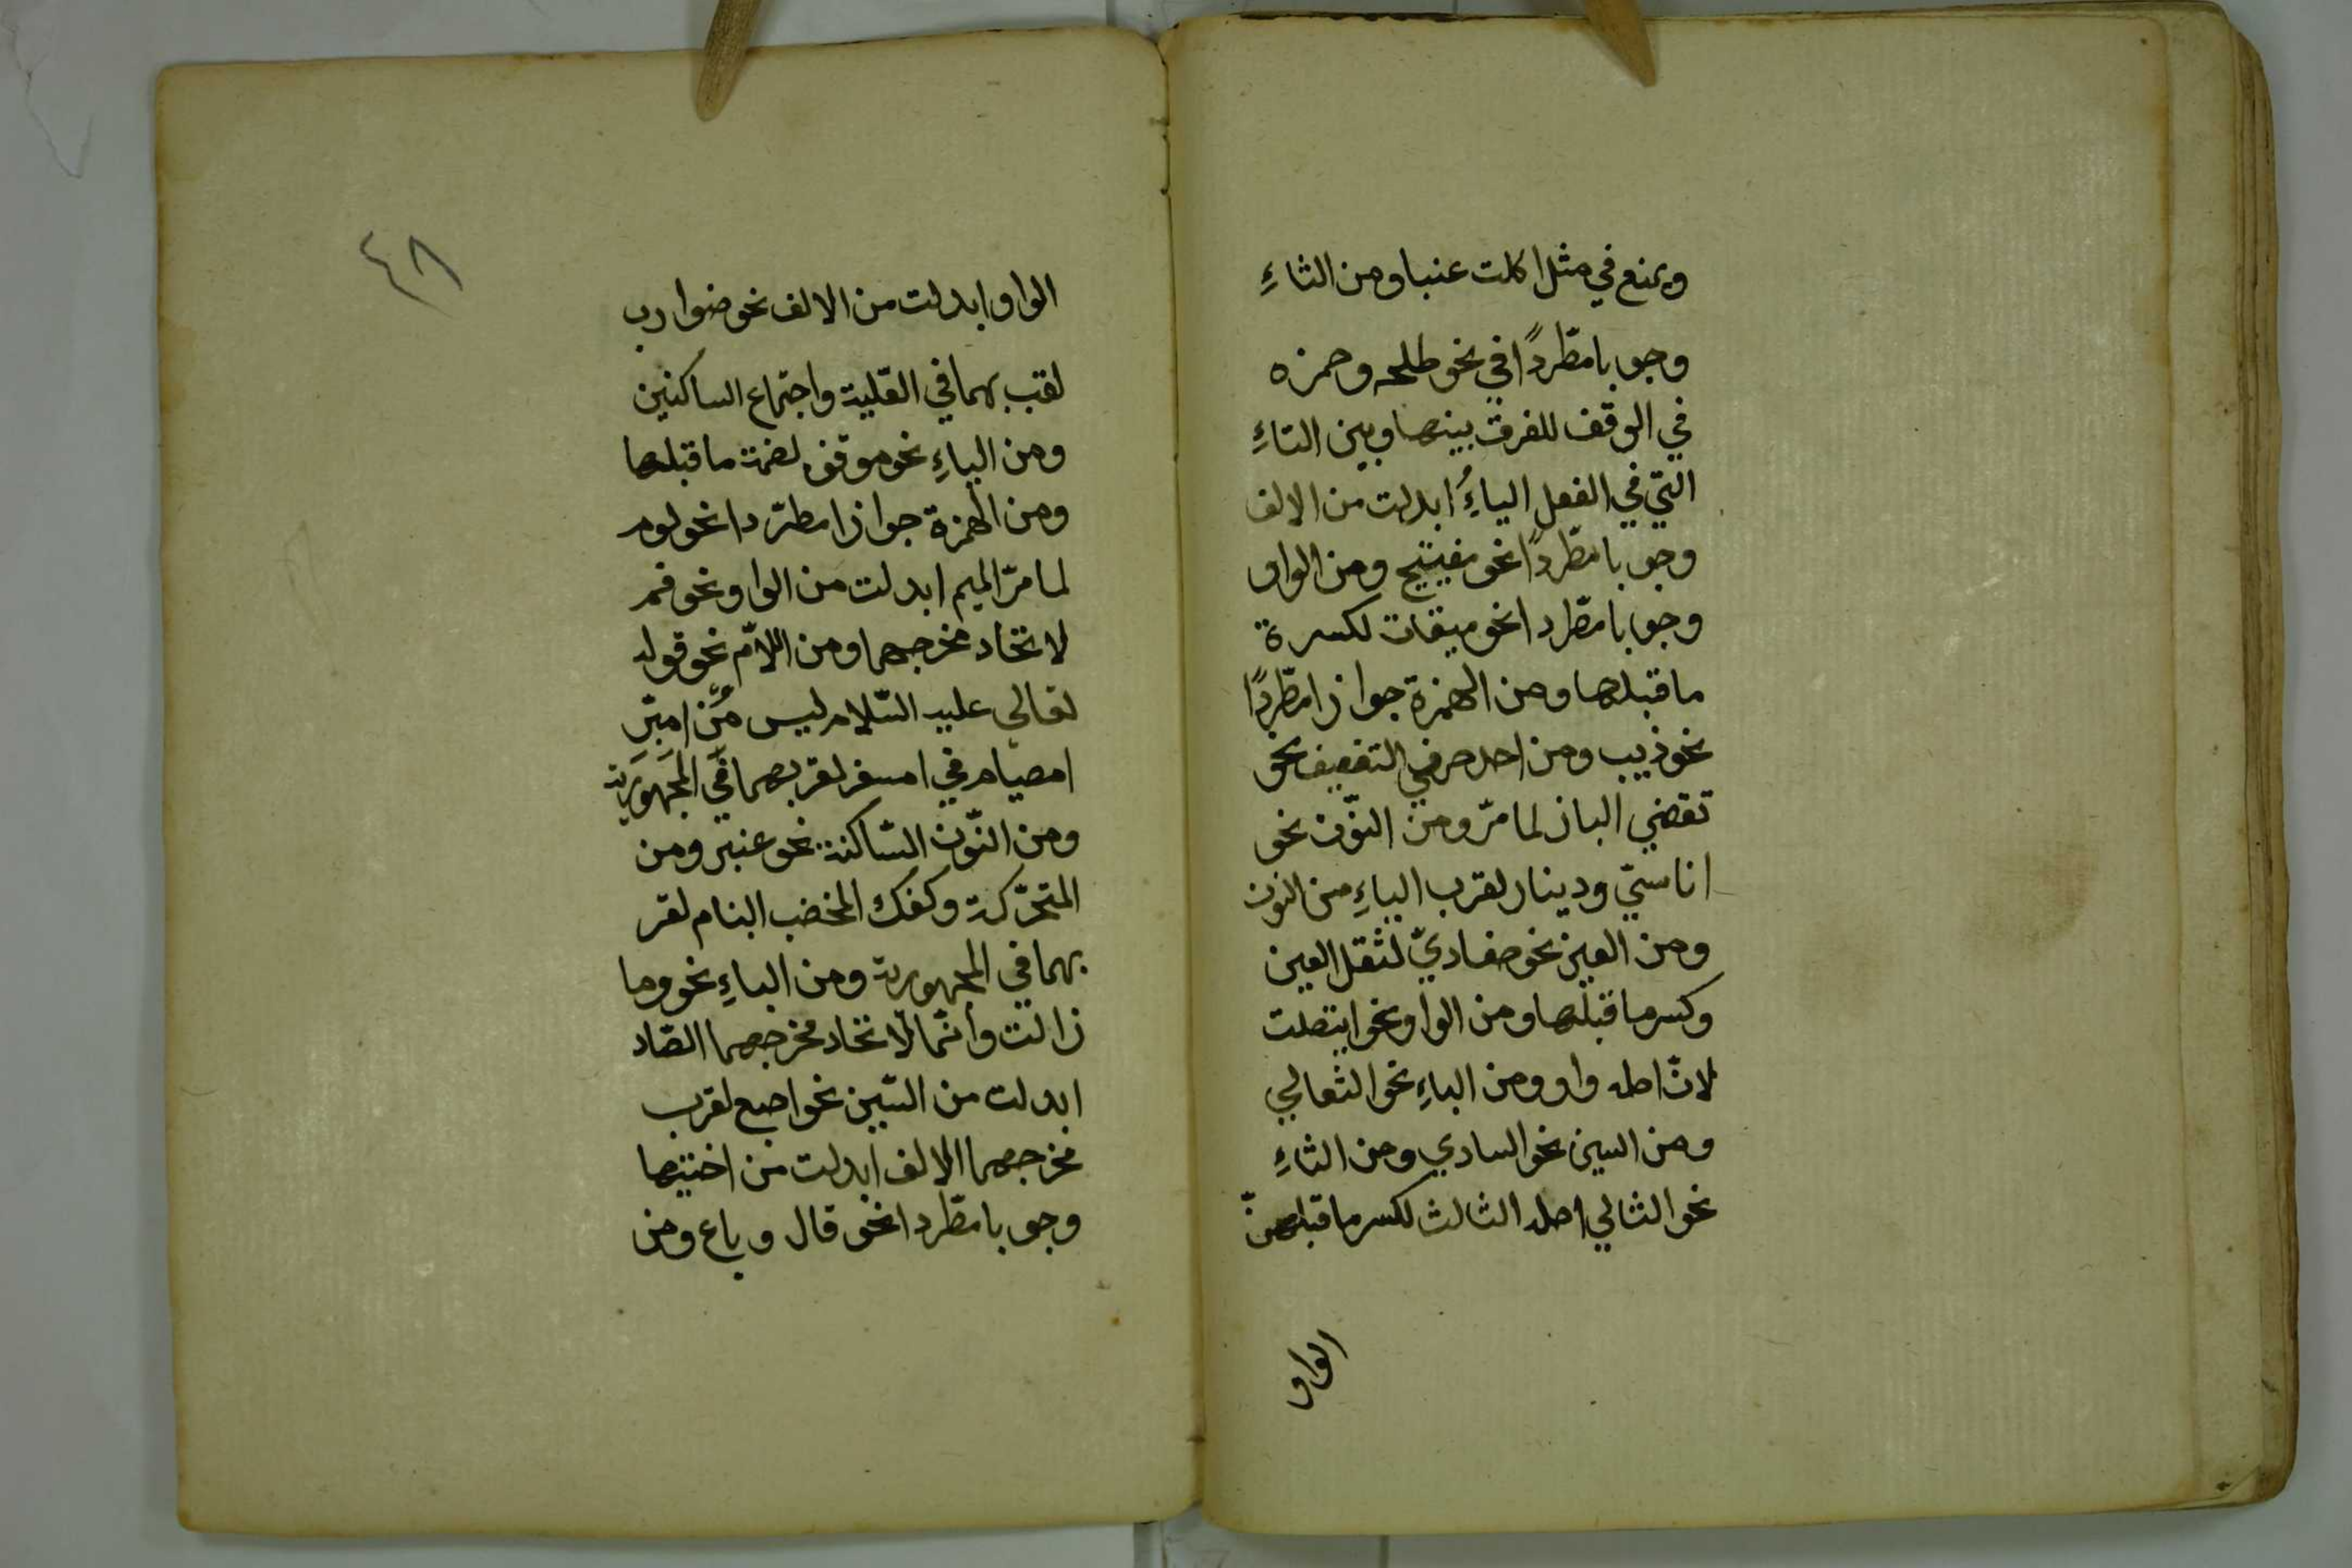 ويمنع في مثل اكلت عنبا ومن الثاءِ
وجوبا مطّردًا في نحو طلحه وحمزه
في الوقف للفرق بينها وبين التاءِ
التي في الفعل الياءُ ابدلت من الالف
وجوبا مطّردًا نحو مفيتيح ومن الواو
وجوبا مطّردا نحو ميقات لكسرة
ما قبلها ومن الهمزة جوازا مطّردًا
نحو ذيب ومن احد حرفي التضعيف نحو
تقضي الباز لما مرّ ومن النوّن نحو
اناسيّ ودينار لقرب الياءِ من النون
ومن العين نحو ضفاديّ لثقل العين
وكسر ما قبلها ومن الواو نحو ايتصلت
لانّ اصله واو ومن الباءِ نحو الثعالي
ومن السين نحو السادي ومن الثاءِ
نحو الثالي اصله الثالث لكسر ما قبلهنّ
الواو
٤٨
الواو ابدلت من الالف نحو ضوارب
لقب بهما في العّلية واجتماع الساكنين
ومن الياءِ نحو موقن لضمة ما قبلها
ومن الهمزة جوازا مطّردا نحو لوم
لما مرّ الميم ابدلت من الواو نحو فم
لاتحاد مخرجهما ومن اللاّم نحو قوله
تعالي عليه السّلام ليس مّن امبّر
امصيام في امسفر لقربهما في المَجَهورية
ومن النّون السّاكنة نحو عنبر ومن
المتحرّكة وكفك المخضب البنام لقر
بهما في المجهورية ومن الباءِ نحو وما
زالت وانّما لاتحاد مخرجهما الصّاد
ابدلت من السّين نحو اصبع لقرب
مخرجهما الالف ابدلت من اختيها
وجوبا مطّردا نحو قال وباع ومن